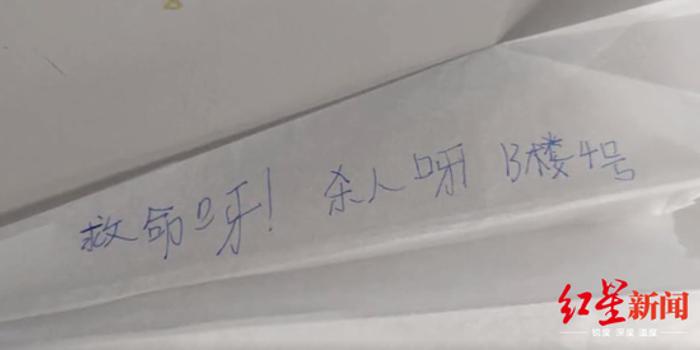 救命呀! 杀人呀 13楼4号
红星新闻
锐度 深度 温度